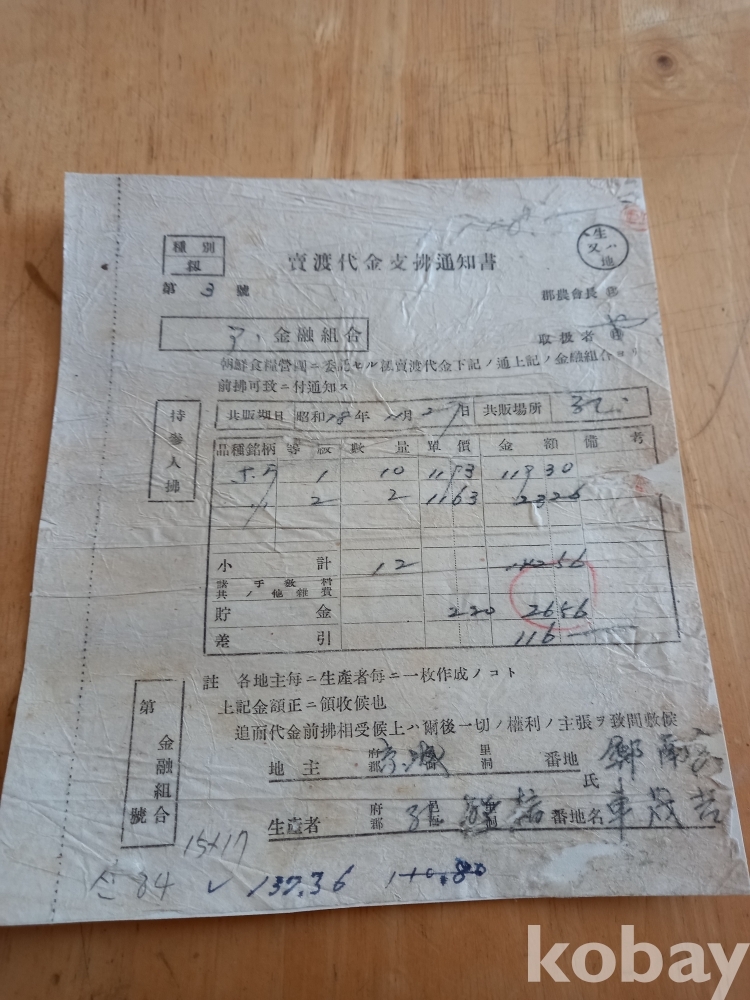 種別
賣渡代金支拂通知書
生又ハ地
第 3 號
郡農會長
金融組合
取扱者
朝鮮食糧營團ニ委託セル 賣渡代金下記ノ通上記ノ金融組合ヨリ
前拂可致ニ付通知ス
持參人拂
共販期日 昭和18年 11月 27日 共販場所
品種銘柄 等級 數量 單價 金額 備考
1 10 1193 11930
2 2 1163 2326
小計 12 14256
諸手數料
共ノ他雜費
貯金 220 2656
差引 116
註 各地主每ニ生產者每ニ一枚作成ノコト
上記金額正ニ領收候也
追而代金前拂相受候上ハ爾後一切ノ權利ノ主張ヲ致間敷候
第 金融組合 號
地主 府郡 里洞 番地 鄭
氏名
生產者 府郡 番地 車
15+17
84 137.36 140.80
kobay